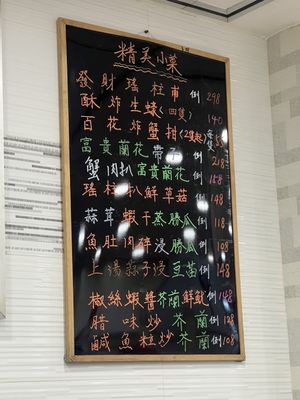 精美小菜
發財瑤柱甫 例 298
酥炸生蠔(四隻) 140
百花炸蟹拑(2隻起) 每隻
富貴蘭花帶子 例 218
蟹肉扒富貴蘭花 例 168
瑤柱扒鮮草菇 例 148
蒜茸蝦干蒸勝瓜 例 118
魚肚肉碎浸勝瓜 例 108
上湯蒜子浸豆苗 例 148
椒絲蝦醬芥蘭鮮魷 例 148
腊味炒芥蘭 例 128
鹹魚粒炒芥蘭 例 108